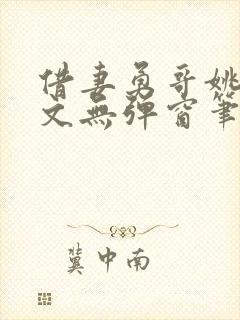 借妻勇哥姚
文无弹窗笔
冀中南